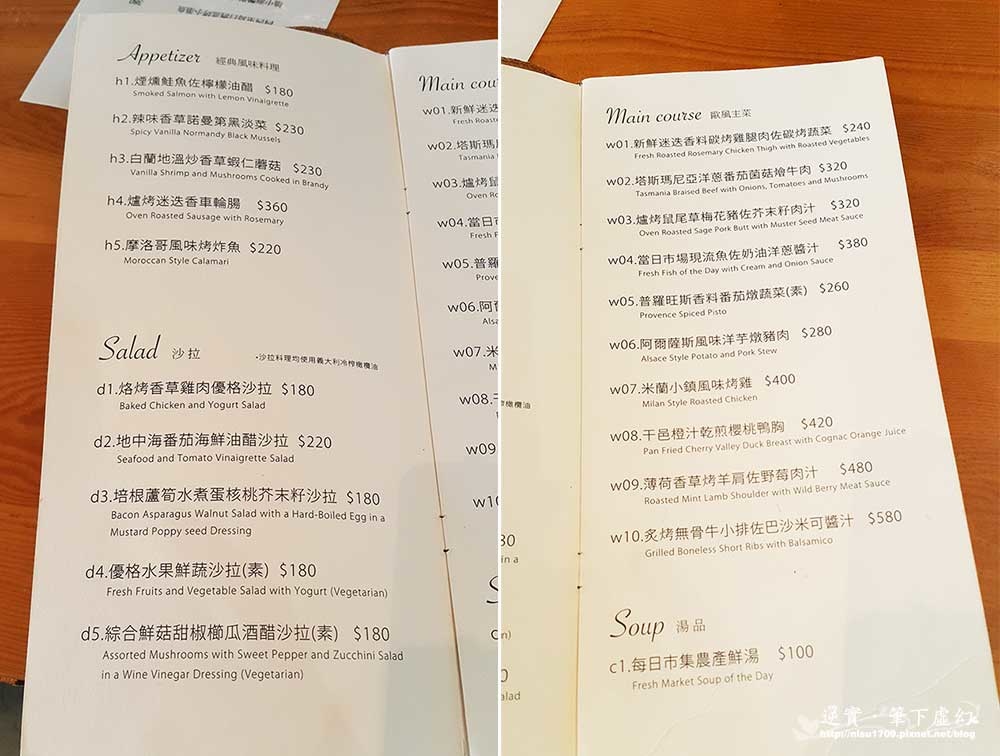 Appetizer 經典風味料理
h1.煙燻鮭魚佐檸檬油醋 $180
Smoked Salmon with Lemon Vinaigrette
h2.辣味香草諾曼第黑淡菜 $230
Spicy Vanilla Normandy Black Mussels
h3.白蘭地溫炒香草蝦仁蘑菇 $230
Vanilla Shrimp and Mushrooms Cooked in Brandy
h4.爐烤迷迭香車輪腸 $360
Oven Roasted Sausage with Rosemary
h5.摩洛哥風味烤炸魚 $220
Moroccan Style Calamari
Salad 沙拉
•沙拉料理均使用義大利冷榨橄欖油
d1.烙烤香草雞肉優格沙拉 $180
Baked Chicken and Yogurt Salad
d2.地中海番茄海鮮油醋沙拉 $220
Seafood and Tomato Vinaigrette Salad
d3.培根蘆筍水煮蛋核桃芥末籽沙拉 $180
Bacon Asparagus Walnut Salad with a Hard-Boiled Egg in a
Mustard Poppy seed Dressing
d4.優格水果鮮蔬沙拉(素) $180
Fresh Fruits and Vegetable Salad with Yogurt (Vegetarian)
d5.綜合鮮菇甜椒櫛瓜酒醋沙拉(素) $180
Assorted Mushrooms with Sweet Pepper and Zucchini Salad
in a Wine Vinegar Dressing (Vegetarian)
Main cour
w01.新鮮迷迭
Fresh Roaste
w02.塔斯瑪
Tasmania
w03.爐烤鼠
Oven Ro
w04.當日市
Fresh F
w05.普羅
Prove
w06.阿爾
Alsa
w07.米
M
w08.干
w09
w10
Main course 歐風主菜
w01.新鮮迷迭香料碳烤雞腿肉佐碳烤蔬菜 $240
Fresh Roasted Rosemary Chicken Thigh with Roasted Vegetables
w02.塔斯瑪尼亞洋蔥番茄菌菇燴牛肉 $320
Tasmania Braised Beef with Onions, Tomatoes and Mushrooms
w03.爐烤鼠尾草梅花豬佐芥末籽肉汁 $320
Oven Roasted Sage Pork Butt with Muster Seed Meat Sauce
w04.當日市場現流魚佐奶油洋蔥醬汁 $380
Fresh Fish of the Day with Cream and Onion Sauce
w05.普羅旺斯香料番茄燉蔬菜(素) $260
Provence Spiced Pisto
w06.阿爾薩斯風味洋芋燉豬肉 $280
Alsace Style Potato and Pork Stew
w07.米蘭小鎮風味烤雞 $400
Milan Style Roasted Chicken
w08.干邑橙汁乾煎櫻桃鴨胸 $420
Pan Fried Cherry Valley Duck Breast with Cognac Orange Juice
w09.薄荷香草烤羊肩佐野莓肉汁 $480
Roasted Mint Lamb Shoulder with Wild Berry Meat Sauce
w10.炙烤無骨牛小排佐巴沙米可醬汁 $580
Grilled Boneless Short Ribs with Balsamico
Soup 湯品
c1.每日市集農產鮮湯 $100
Fresh Market Soup of the Day
逆實一筆下虛幻
http://nisu1709.pixnet.net/blog